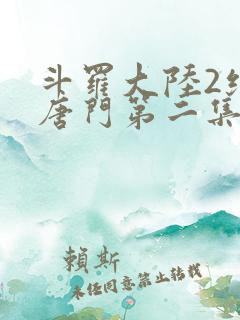 斗羅大陸2
唐門第二集
賴斯
未任同意禁止转载